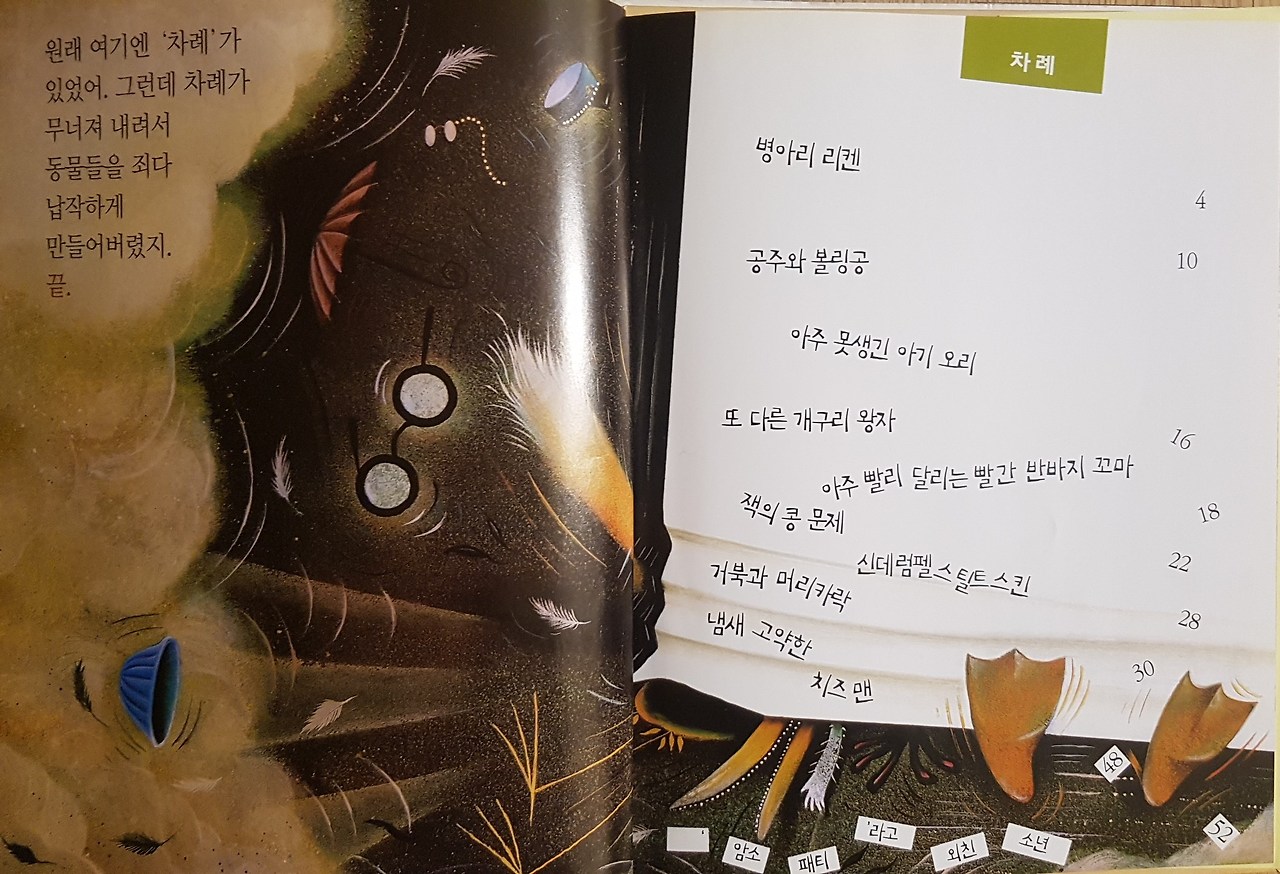 원래 여기엔 '차례'가
있었어. 그런데 차례가
무너져 내려서
동물들을 죄다
납작하게
만들어버렸지.
끝.
차례
병아리 리켄
4
공주와 볼링공
10
아주 못생긴 아기 오리
또 다른 개구리 왕자
16
아주 빨리 달리는 빨간 반바지 꼬마
잭의 콩 문제
18
신데럼펠스틸트스킨
22
거북과 머리카락
28
냄새 고약한
치즈 맨
30
48
52
'
암소
패티
'라고
외친
소년